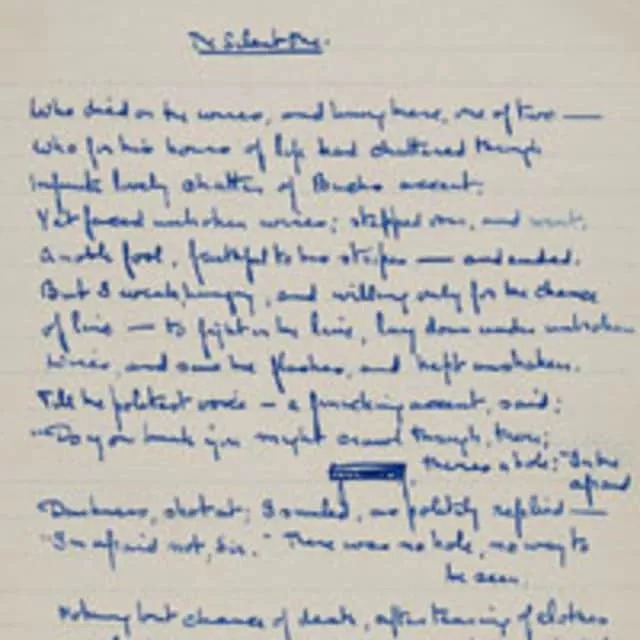 The Silent One.
Who died on the wires, and hung there, one of two —
Who for his hours of life had chattered through
Infinite lovely chatter of Bucks accent;
Yet faced unbroken wires; stepped over, and went,
A noble fool, faithful to his stripes — and ended.
But I weak, hungry, and willing only for the chance
Of line — to fight in the line, lay down under unbroken
Wires, and saw the flashes, and kept unshaken.
Till the politest voice — a finicking accent, said:
"Do you think you might crawl through, there;
there's a hole;" In the
afraid
Darkness, shot at; I smiled, as politely replied —
"I'm afraid not, Sir." There was no hole, no way to
be seen.
Nothing but chance of death, after tearing of clothes